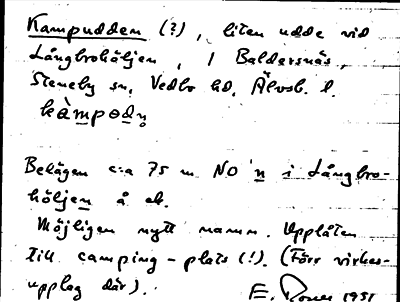 Kampudden (?), liten udde vid
Långbrohöljen, 1 Baldersnäs,
Steneby sn, Vedbo hd, Älvsb. l.
kàmpɵdn̥
Belägen c:a 75 m NO 'n i Långbro-
höljen å ek.
Möjligen nytt namn. Upplåten
till camping-plats (!). (Förr virkes-
upplag där).
E. 1951